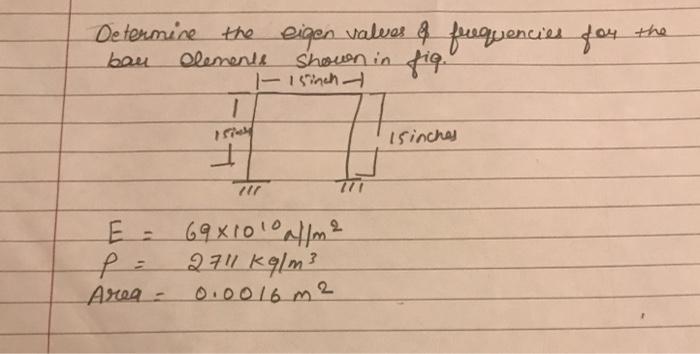 Determine the eigen values & frequencies for the
bar elements shown in fig.
15inch
15inch
15inches
E = 69×10¹⁰ N/m²
ρ = 2711 kg/m³
Area = 0.0016 m²